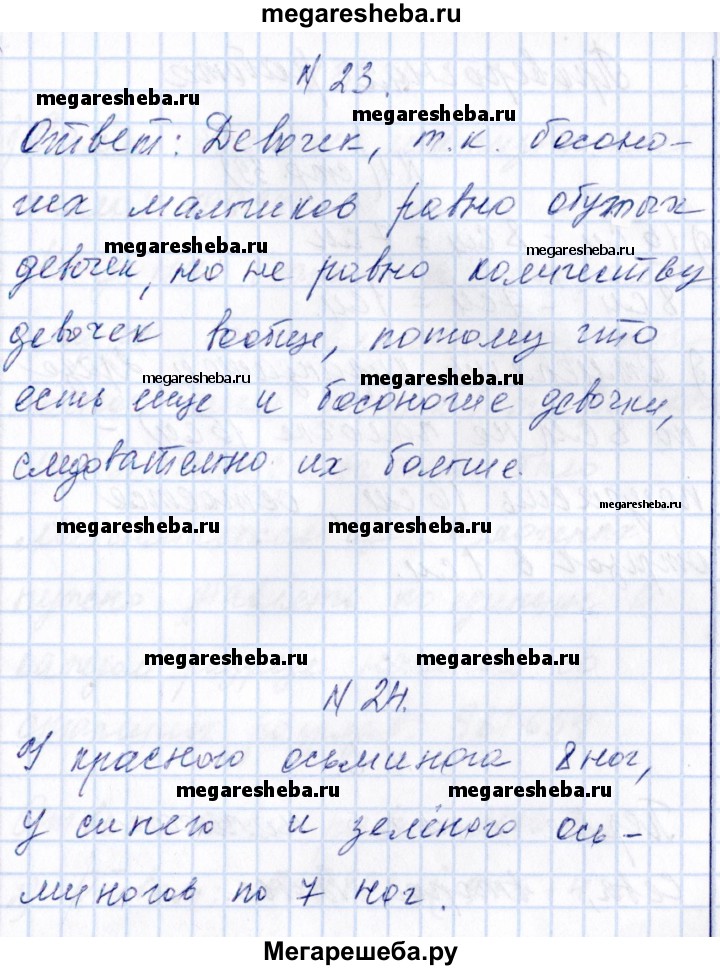 megaresheba.ru
N 23.
megaresheba.ru
megaresheba.ru
Ответ: Девочек, т.к. босоно-
гих мальчиков равно обутых
megaresheba.ru
megaresheba.ru
девочек, но не равно количеству
девочек вообще, потому что
megaresheba.ru
megaresheba.ru
есть еще и босоногие девочки,
следовательно их больше.
megaresheba.ru
megaresheba.ru
megaresheba.ru
megaresheba.ru
megaresheba.ru
N 24.
У красного осьминога 8 ног,
megaresheba.ru
megaresheba.ru
у синего и зелёного ось-
миногов по 7 ног.
Мегарешеба.ру